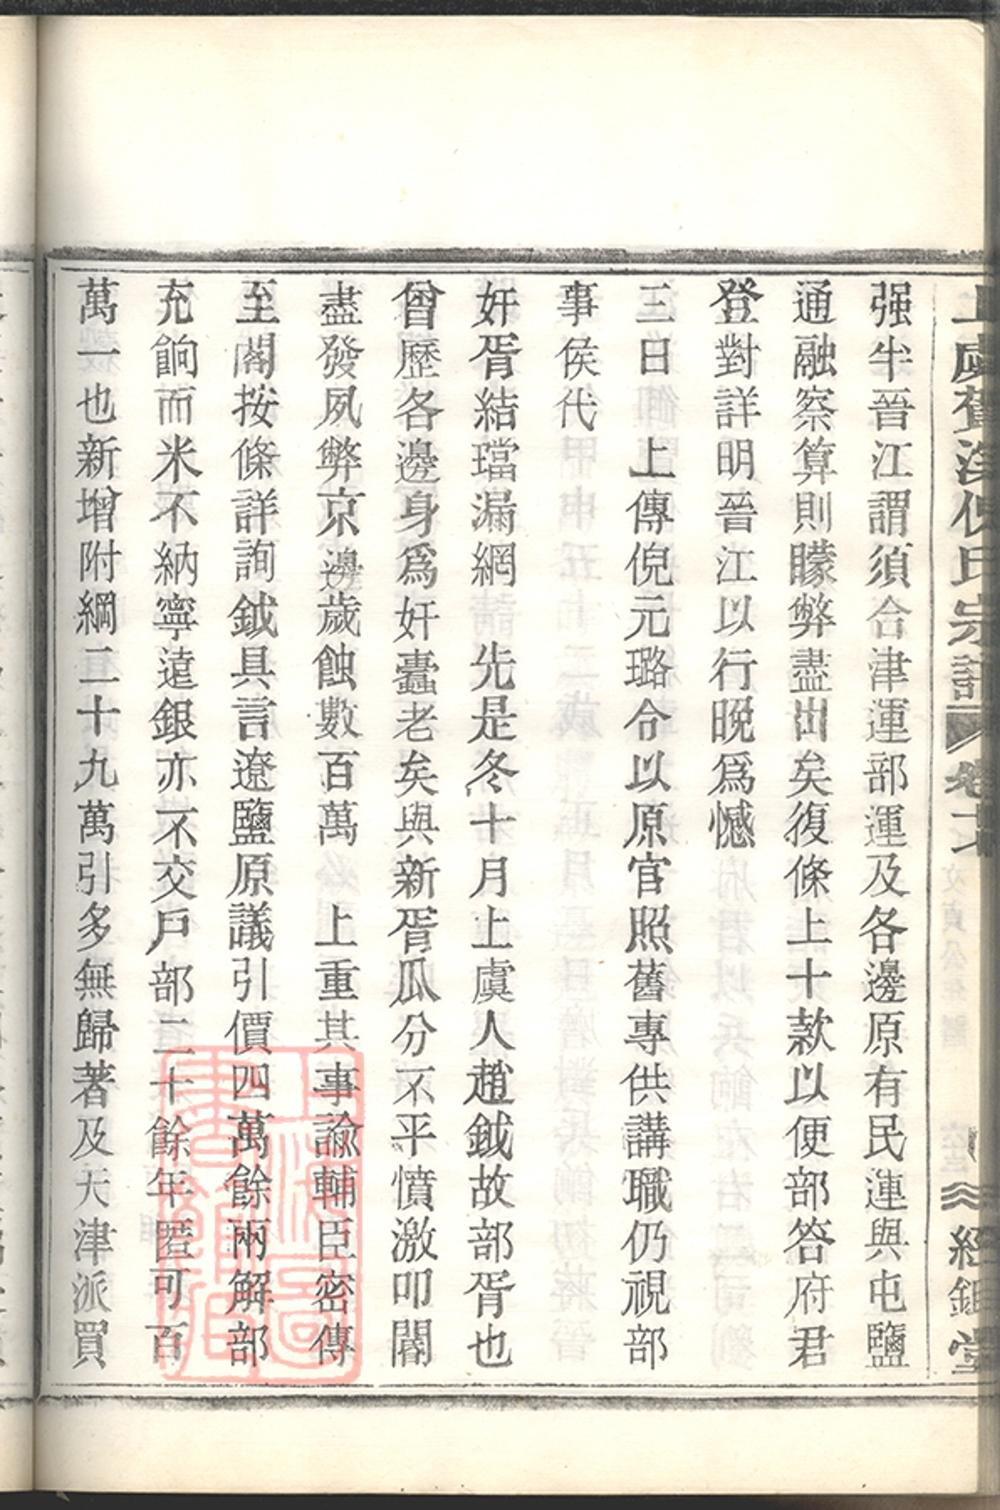 上虞賀溪倪氏宗譜 卷十七 文貞公年譜 經鉏堂
强半晉江謂須合津運部運及各邊原有民運與屯鹽
通融察算則矇弊盡出矣復條上十款以便部答府君
登對詳明晉江以行晚爲憾
三日 上傳倪元璐令以原官照舊專供講職仍視部
事侯代
奸胥結璫漏網 先是冬十月上虞人趙鉞故部胥也
曾歷各邊身爲奸蠹老矣與新胥瓜分不平憤激叩閽
盡發夙弊京邊歲蝕數百萬 上重其事諭輔臣密傳
至閣按條詳詢鉞具言遼鹽原議引價四萬餘兩解部
充餉而米不納寧遠銀亦不交戶部二十餘年匿可百
萬一也新增附綱二十九萬引多無歸著及天津派買
上海圖書館藏